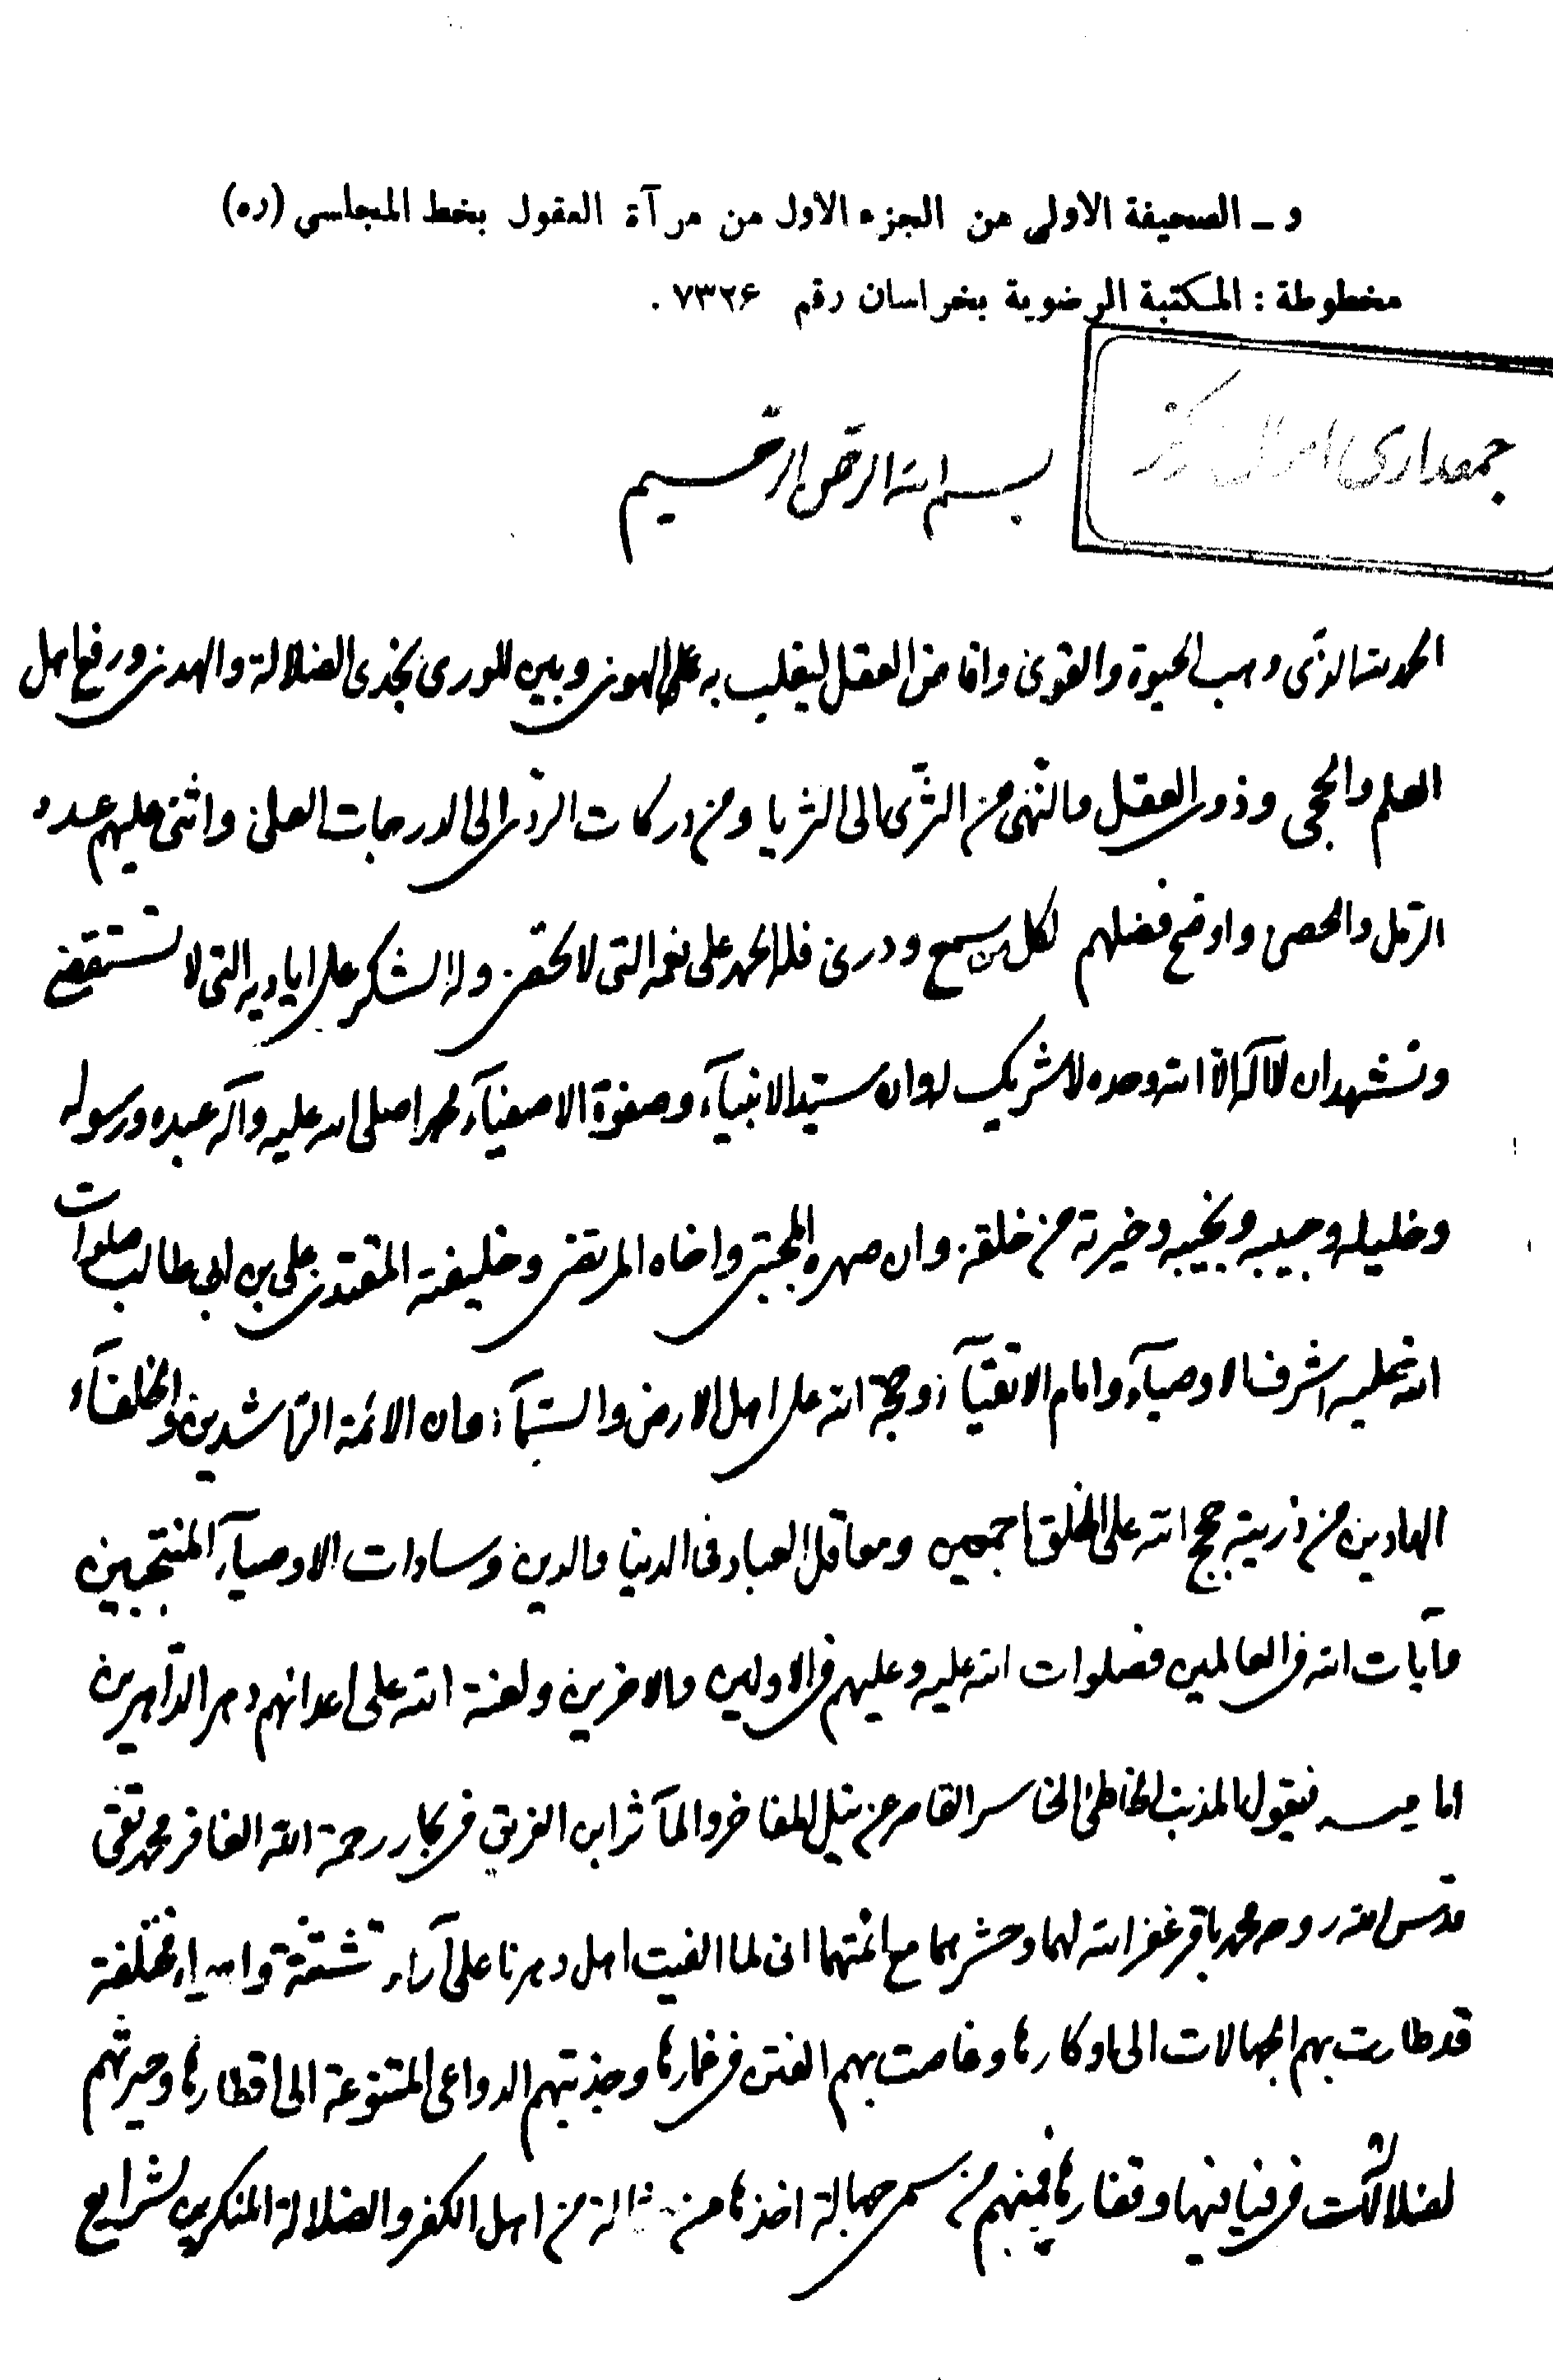 و ـ الصحيفة الاولى من الجزء الاول من مرآة العقول بخط المجلسي (ره)
مخطوطة : المكتبة الرضوية بخراسان رقم ٧٣٢۶ .
جمعداری اموال مركز
بسم الله الرحمن الرحيم
الحمد لله الذى وهب الحيوة والقوى وافاض العقل ليغلب به على الهوى وبين للورى نجدى الضلالة والهدى ورفع اهل
العلم والحجى وذوى العقل والنهى من الثرى الى الثريا ومن دركات الردى الى الدرجات العلى واثنى عليهم عدد
الرمل والحصى واوضح فضلهم لكل من سمع ودرى فله الحمد على نعمه التى لا تحصى وله الشكر على اياديه التى لا تستقصى
ونشهد ان لا آله الا الله وحده لا شريك له وان سيد الانبيآء وصفوة الاصفيآء محمدا صلى الله عليه وآله عبده ورسوله
وخليله وحبيبه ونجيبه وخيرته من خلقه وان صهره المجتبى واخاه المرتضى وخليفته المقتدى على بن ابى طالب صلوات
الله عليه اشرف الاوصيآء وامام الاتقيآء وحجة الله على اهل الارض والسمآء وان الائمة الراشدين والخلفآء
الهادين من ذريته حجج الله على الخلق اجمعين ومعاقل العباد فى الدنيا والدين وسادات الاوصيآء المنتجبين
وآيات الله فى العالمين فصلوات الله عليه وعليهم فى الاولين والاخرين ولعنة الله على اعدائهم دهر الداهرين
اما بعد فيقول المذنب الخاطئ الخاسر القاصر عن نيل المفاخر والمآثر ابن الغريق فى بحار رحمة الله الغافر محمد تقى
قدس الله روحه محمد باقر غفر الله لهما وحشرهما مع ائمتهما انى لما الفيت اهل دهرنا على آراء متشتتة واهواء مختلفة
قد طارت بهم الجهالات الى اوكارها وغاصت بهم الفتن فى غمارها وجذبتهم الدواعى المتنوعة الى اقطارها وحيرتهم
الضلالات فى فيافيها وقفارها فمنهم من سمى جهالة اخذها من حثالة من اهل الكفر والضلالة المنكرين لشرايع